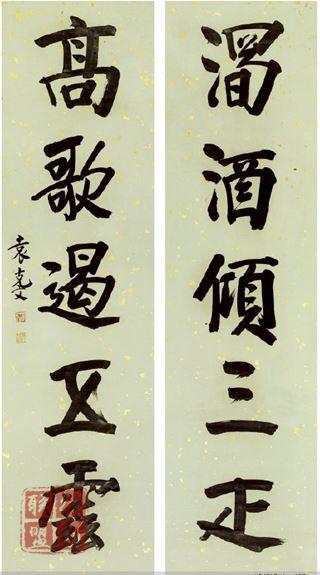 酒傾三疋
高歌遏五雲
袁克文
聯盟